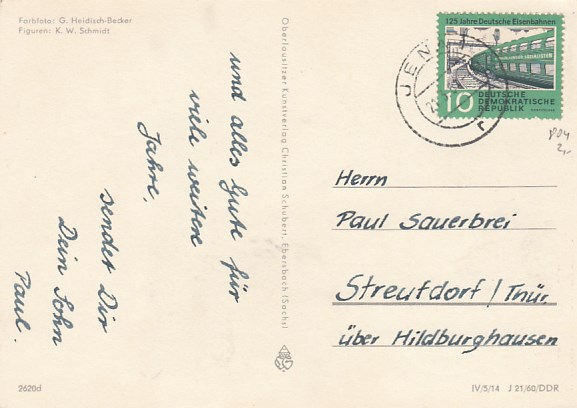 Farbfoto: G. Heidisch-Becker
Figuren: K. W. Schmidt
und alles Gute für
viele weitere
Jahre,
sendet Dir
Dein Sohn
Paul.
2620d
Oberlausitzer Kunstverlag Christian Schubert, Ebersbach (Sachs)
125 Jahre Deutsche Eisenbahnen
10 DEUTSCHE
DEMOKRATISCHE
REPUBLIK
JENA
r
2,-
Herrn
Paul Sauerbrei
Streufdorf / Thür.
über Hildburghausen
IV/5/14 J 21/60/DDR